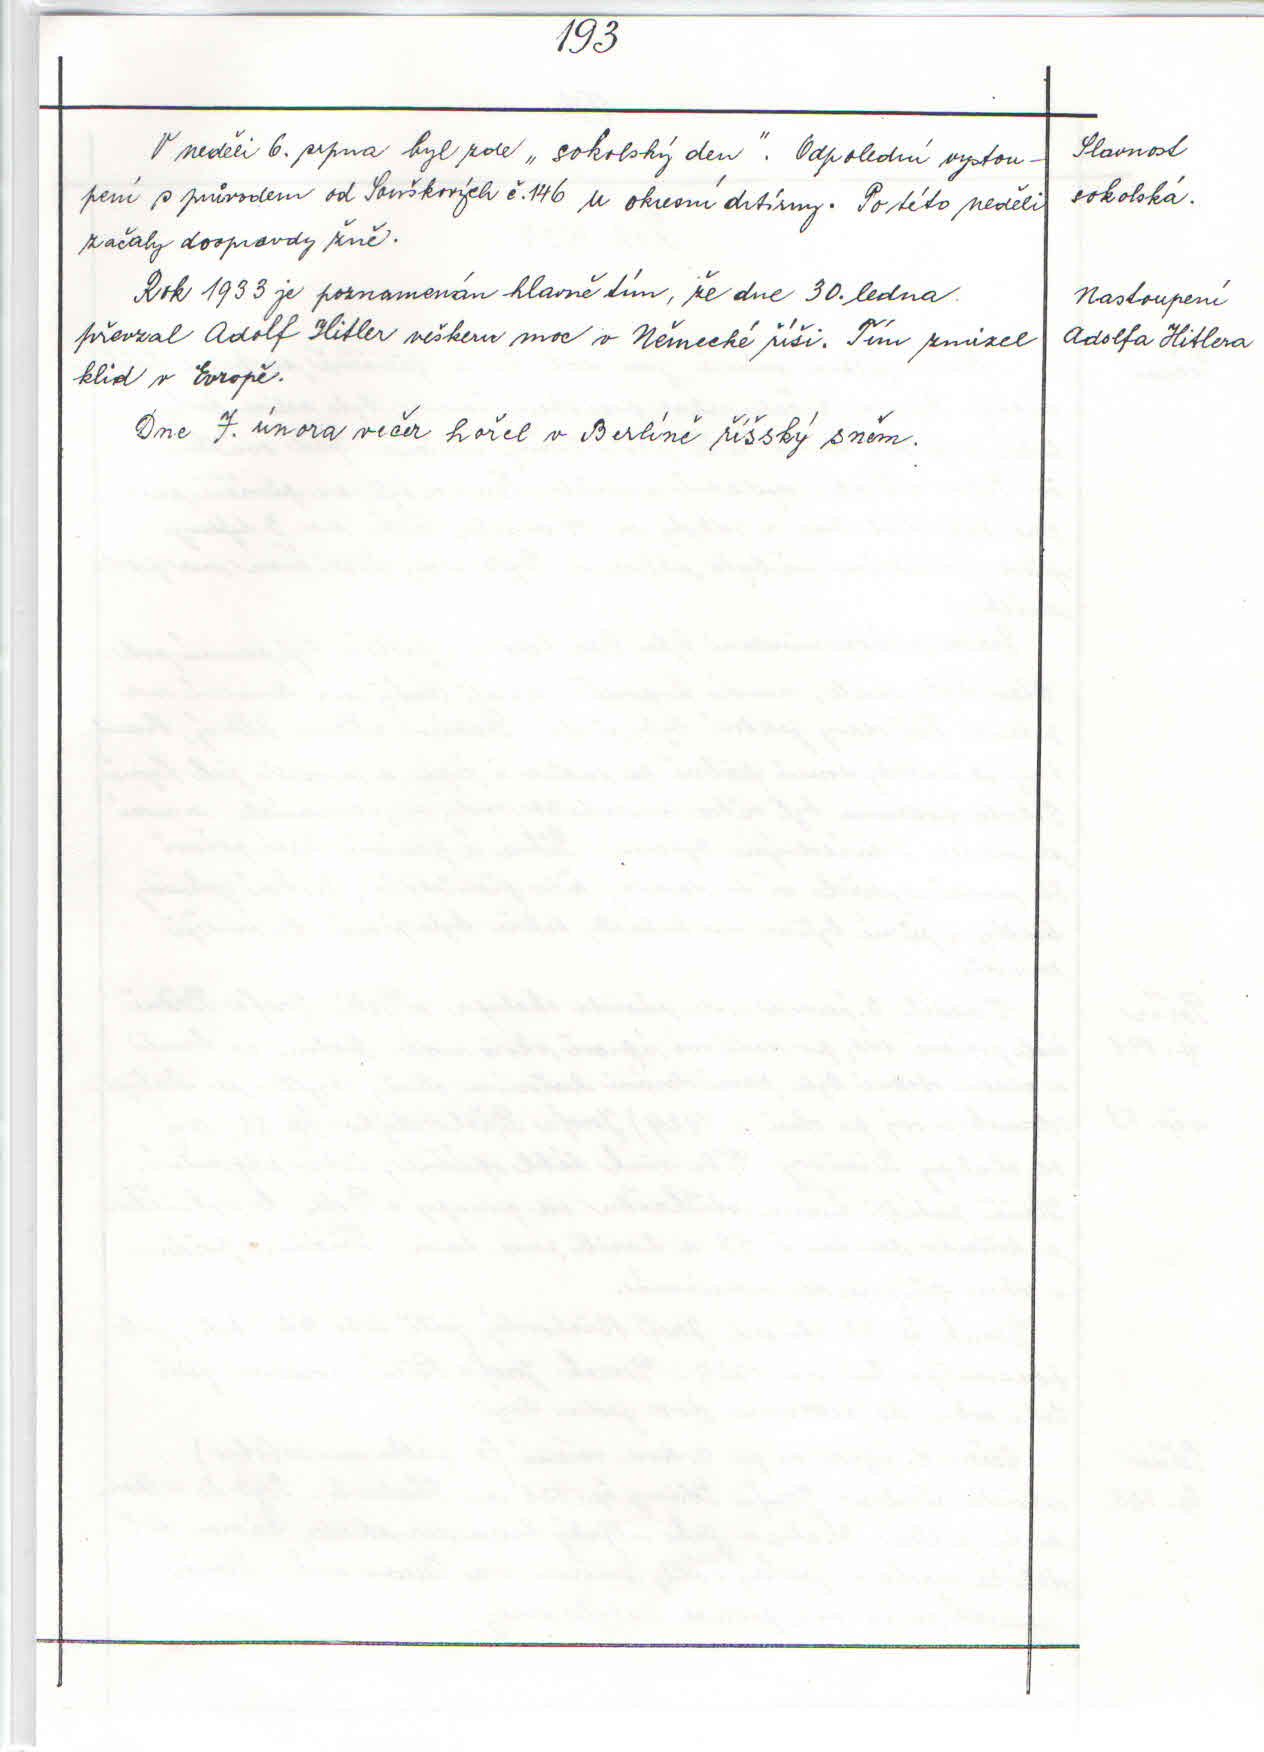 193
V neděli 6. srpna byl zde „sokolský den". Odpolední vystou-
pení s průvodem od Souškových č. 146 u okresní drtírny. Po této neděli
začaly doopravdy žně.
Slavnost
sokolská.
Rok 1933 je poznamenán hlavně tím, že dne 30. ledna
převzal Adolf Hitler veškeru moc v Německé říši. Tím zmizel
klid v Evropě.
Nastoupení
Adolfa Hitlera
Dne 7. února večer hořel v Berlíně říšský sněm.